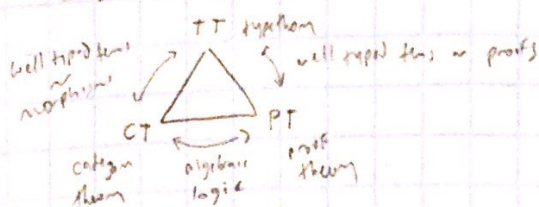 TT type thory
well typed terms
~
morphisms
well typed terms ~ proofs
CT
PT
category
theory
algebraic
logic
proof
theory